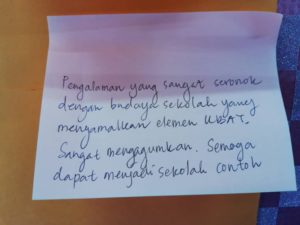 Pengalaman yang sangat seronok
dengan budaya sekolah yang
mengamalkan elemen KBAT.
Sangat mengagumkan. Semoga
dapat menjadi sekolah contoh